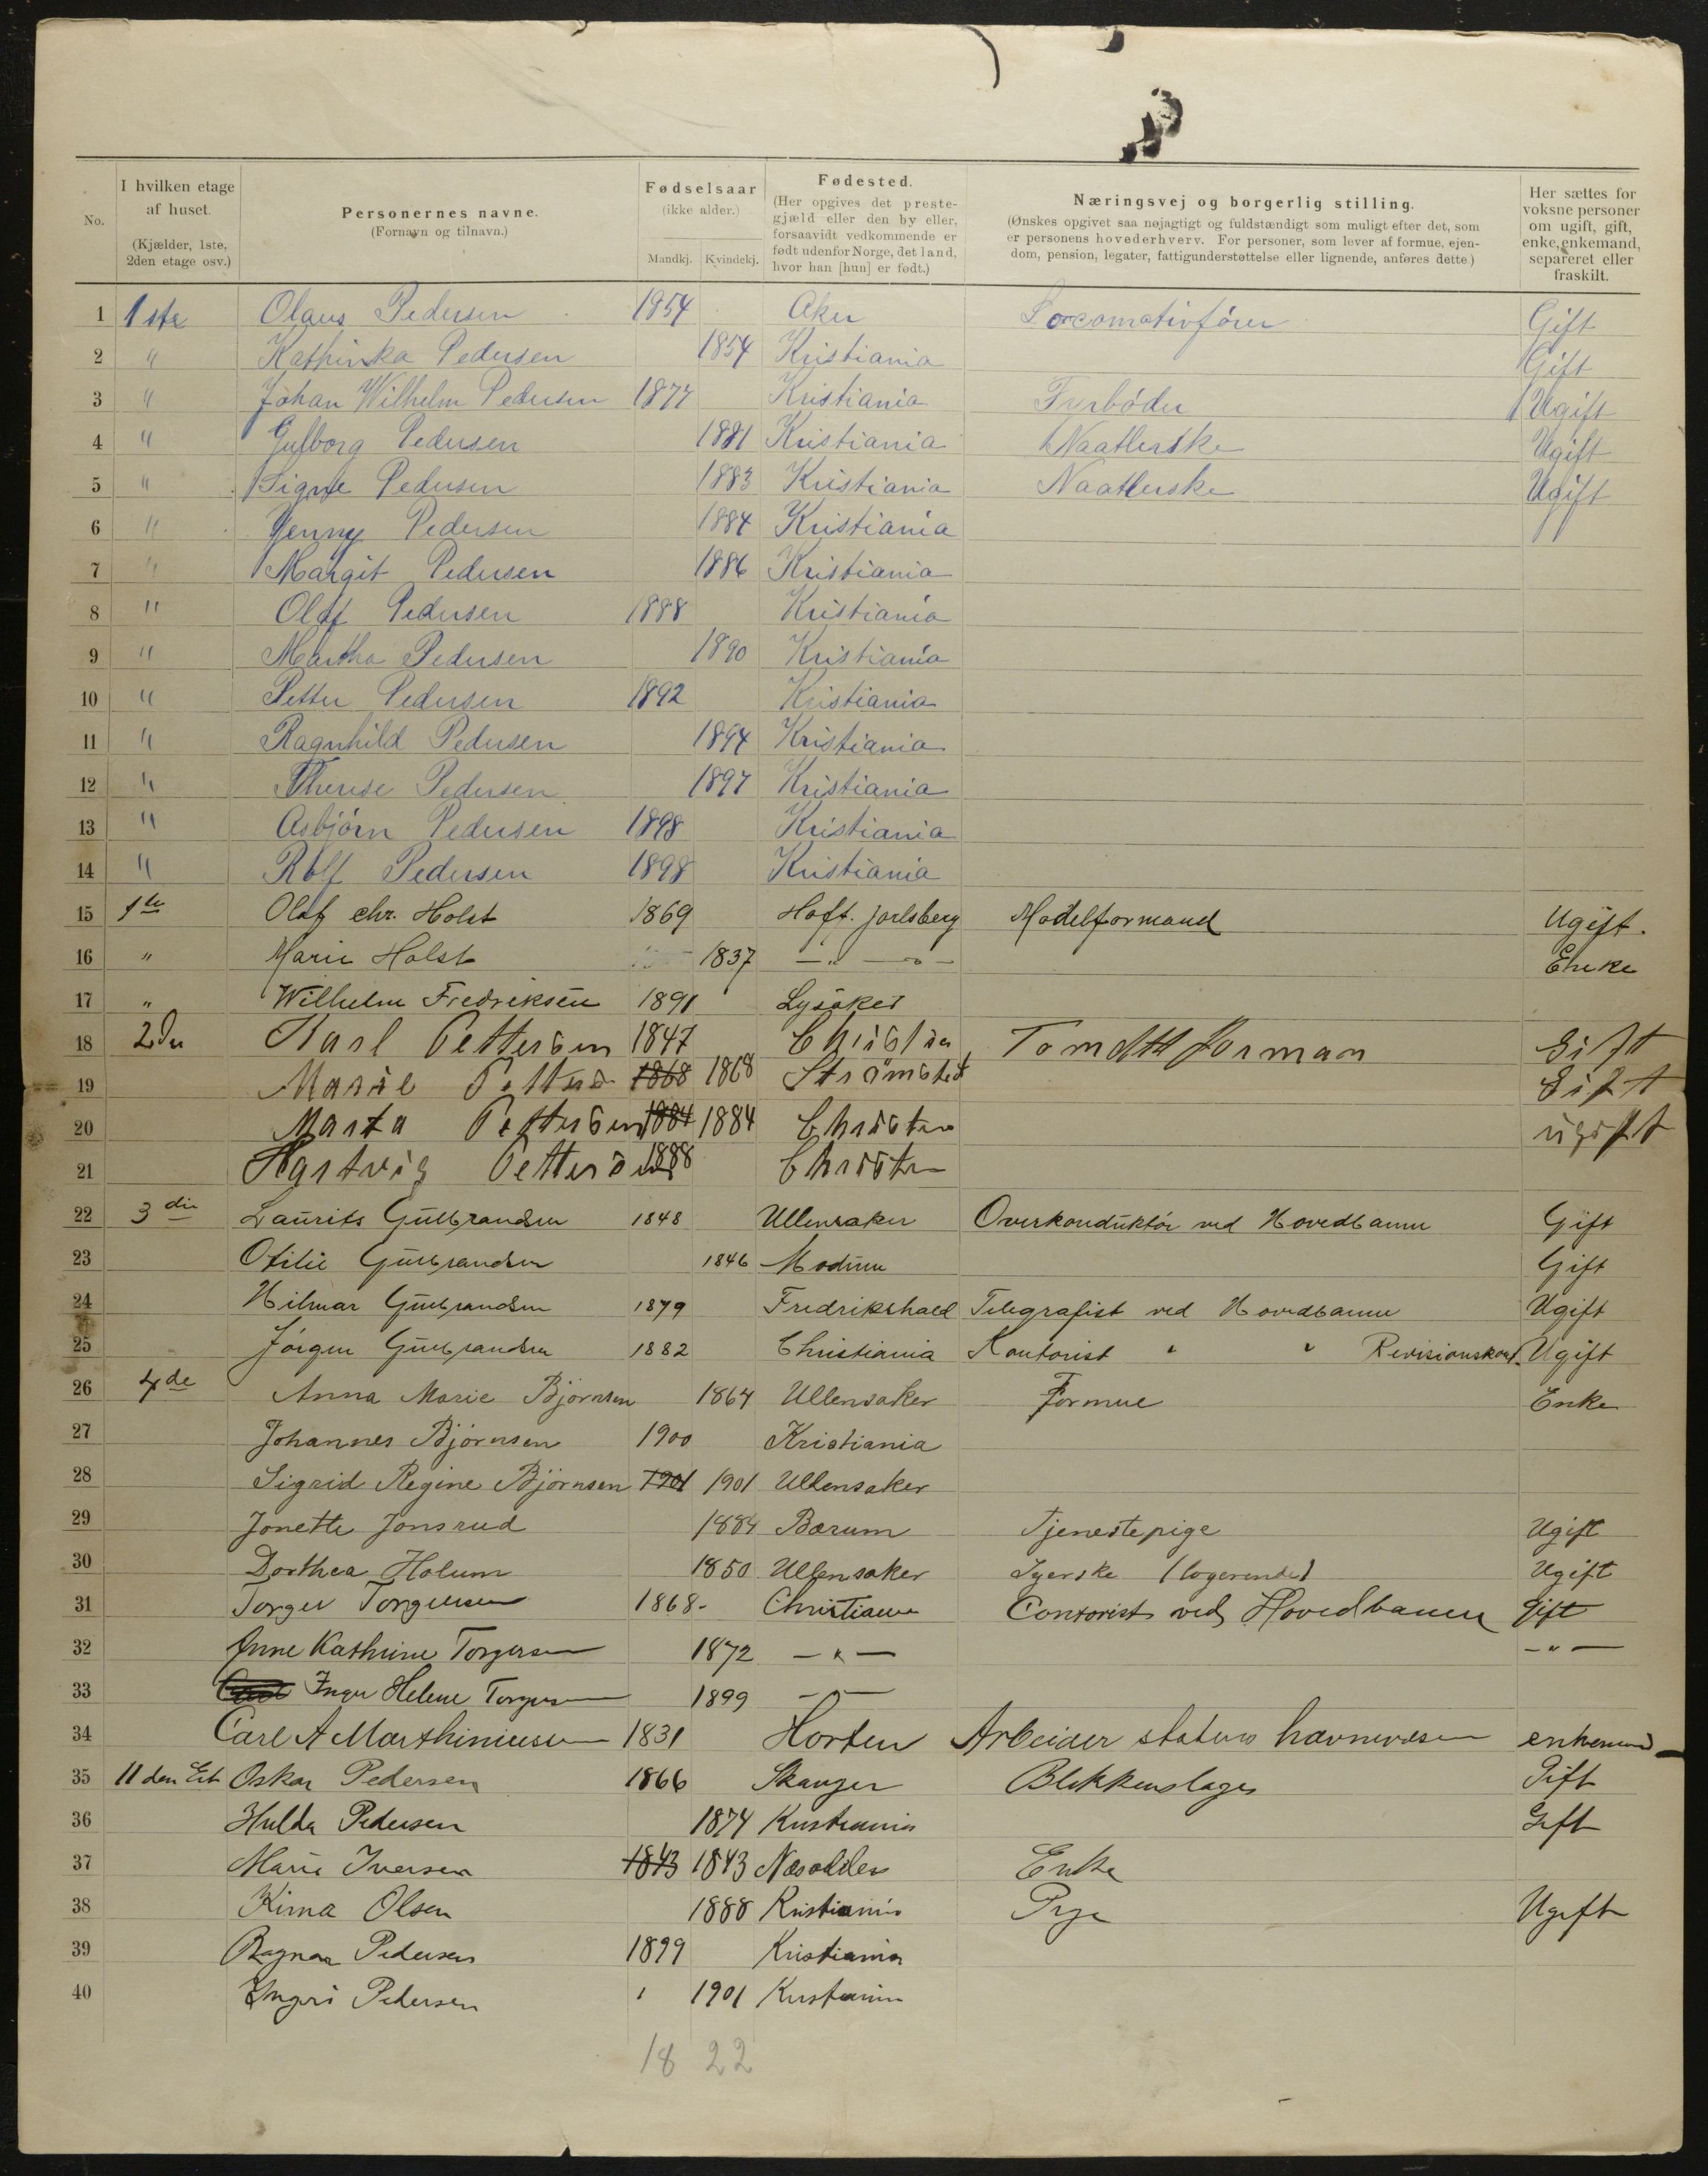 No.
I hvilken etage af huset.
(Kjælder, 1ste, 2den etage osv.)
Personernes navne.
(Fornavn og tilnavn.)
Fødselsaar
(ikke alder.)
Mandkj. Kvindekj.
Fødested.
(Her opgives det prestegjæld eller den by eller, forsaavidt vedkommende er født udenfor Norge, det land, hvor han [hun] er født.)
Næringsvej og borgerlig stilling.
(Ønskes opgivet saa nøjagtigt og fuldstændigt som muligt efter det, som er personens hovederhverv. For personer, som lever af formue, ejendom, pension, legater, fattigunderstøttelse eller lignende, anføres dette)
Her sættes for voksne personer om ugift, gift, enke, enkemand, separeret eller fraskilt.
1 1ste Olaus Pedersen 1854 Aker Locomotivfører Gift
2 " Kathinka Pedersen 1854 Kristiania Gift
3 " Johan Wilhelm Pedersen 1877 Kristiania Fyrbøder Ugift
4 " Gulborg Pedersen 1881 Kristiania Naatlerske Ugift
5 " Signe Pedersen 1883 Kristiania Naatlerske Ugift
6 " Jenny Pedersen 1884 Kristiania
7 " Margit Pedersen 1886 Kristiania
8 " Olaf Pedersen 1888 Kristiania
9 " Martha Pedersen 1890 Kristiania
10 " Petter Pedersen 1892 Kristiania
11 " Ragnhild Pedersen 1894 Kristiania
12 " Therese Pedersen 1897 Kristiania
13 " Asbjørn Pedersen 1898 Kristiania
14 " Rolf Pedersen 1898 Kristiania
15 1ste Olaf Chr. Holst 1869 Hoft. Jarlsberg Modelformand Ugift.
16 " Marie Holst 1837 — " — Enke
17 " Wilhelm Fredriksen 1891 Lysaker
18 2den Karl Pettersen 1847 Christia Tomdtforman Gift
19 Marie Petters 1868 1868 Strömsted Gift
20 Marta Pettersen 1884 1884 Christia ugift
21 Hartvig Pettersen 1888 Christia
22 3die Laurits Gulbrandsen 1848 Ullensaker Overkonduktör ved Hovedbanen Gift
23 Otilie Gulbrandsen 1846 Modum Gift
24 Hilmar Gulbrandsen 1879 Fredrikshald Telegrafist ved Hovedbanen Ugift
25 Jørgen Gulbrandsen 1882 Christiania Kontorist " " Revisionskont. Ugift
26 4de Anna Marie Bjørnsen 1864 Ullensaker Formue Enke
27 Johannes Bjørnsen 1900 Kristiania
28 Sigrid Regine Bjørnsen 1901 1901 Ullensaker
29 Jonette Jonsrud 1884 Bærum Tjenestepige Ugift
30 Dorthea Holum 1850 Ullensaker Syerske (logerende) Ugift
31 Torger Torgersen 1868- Christiania Contorist ved Hovedbanen Gift
32 Anne Kathrine Torgersen 1872 — " — — " —
33 Inger Helene Torgersen 1899 — " —
34 Carl A Marthiniussen 1831 Horten Arbeider statens havnevæsen enkemand
35 11den Et Oskar Pedersen 1866 Skauger Blikkenslager Gift
36 Hulda Pedersen 1874 Kristiania Gift
37 Marie Iversen 1843 1843 Næsodden Enke
38 Kima Olsen 1888 Kristiania Pige Ugift
39 Ragnar Pedersen 1899 Kristiania
40 Ingri Pedersen 1901 Kristiania
18 22